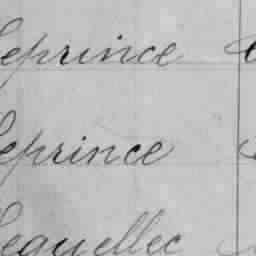 Leprince
Leprince
Lequellec